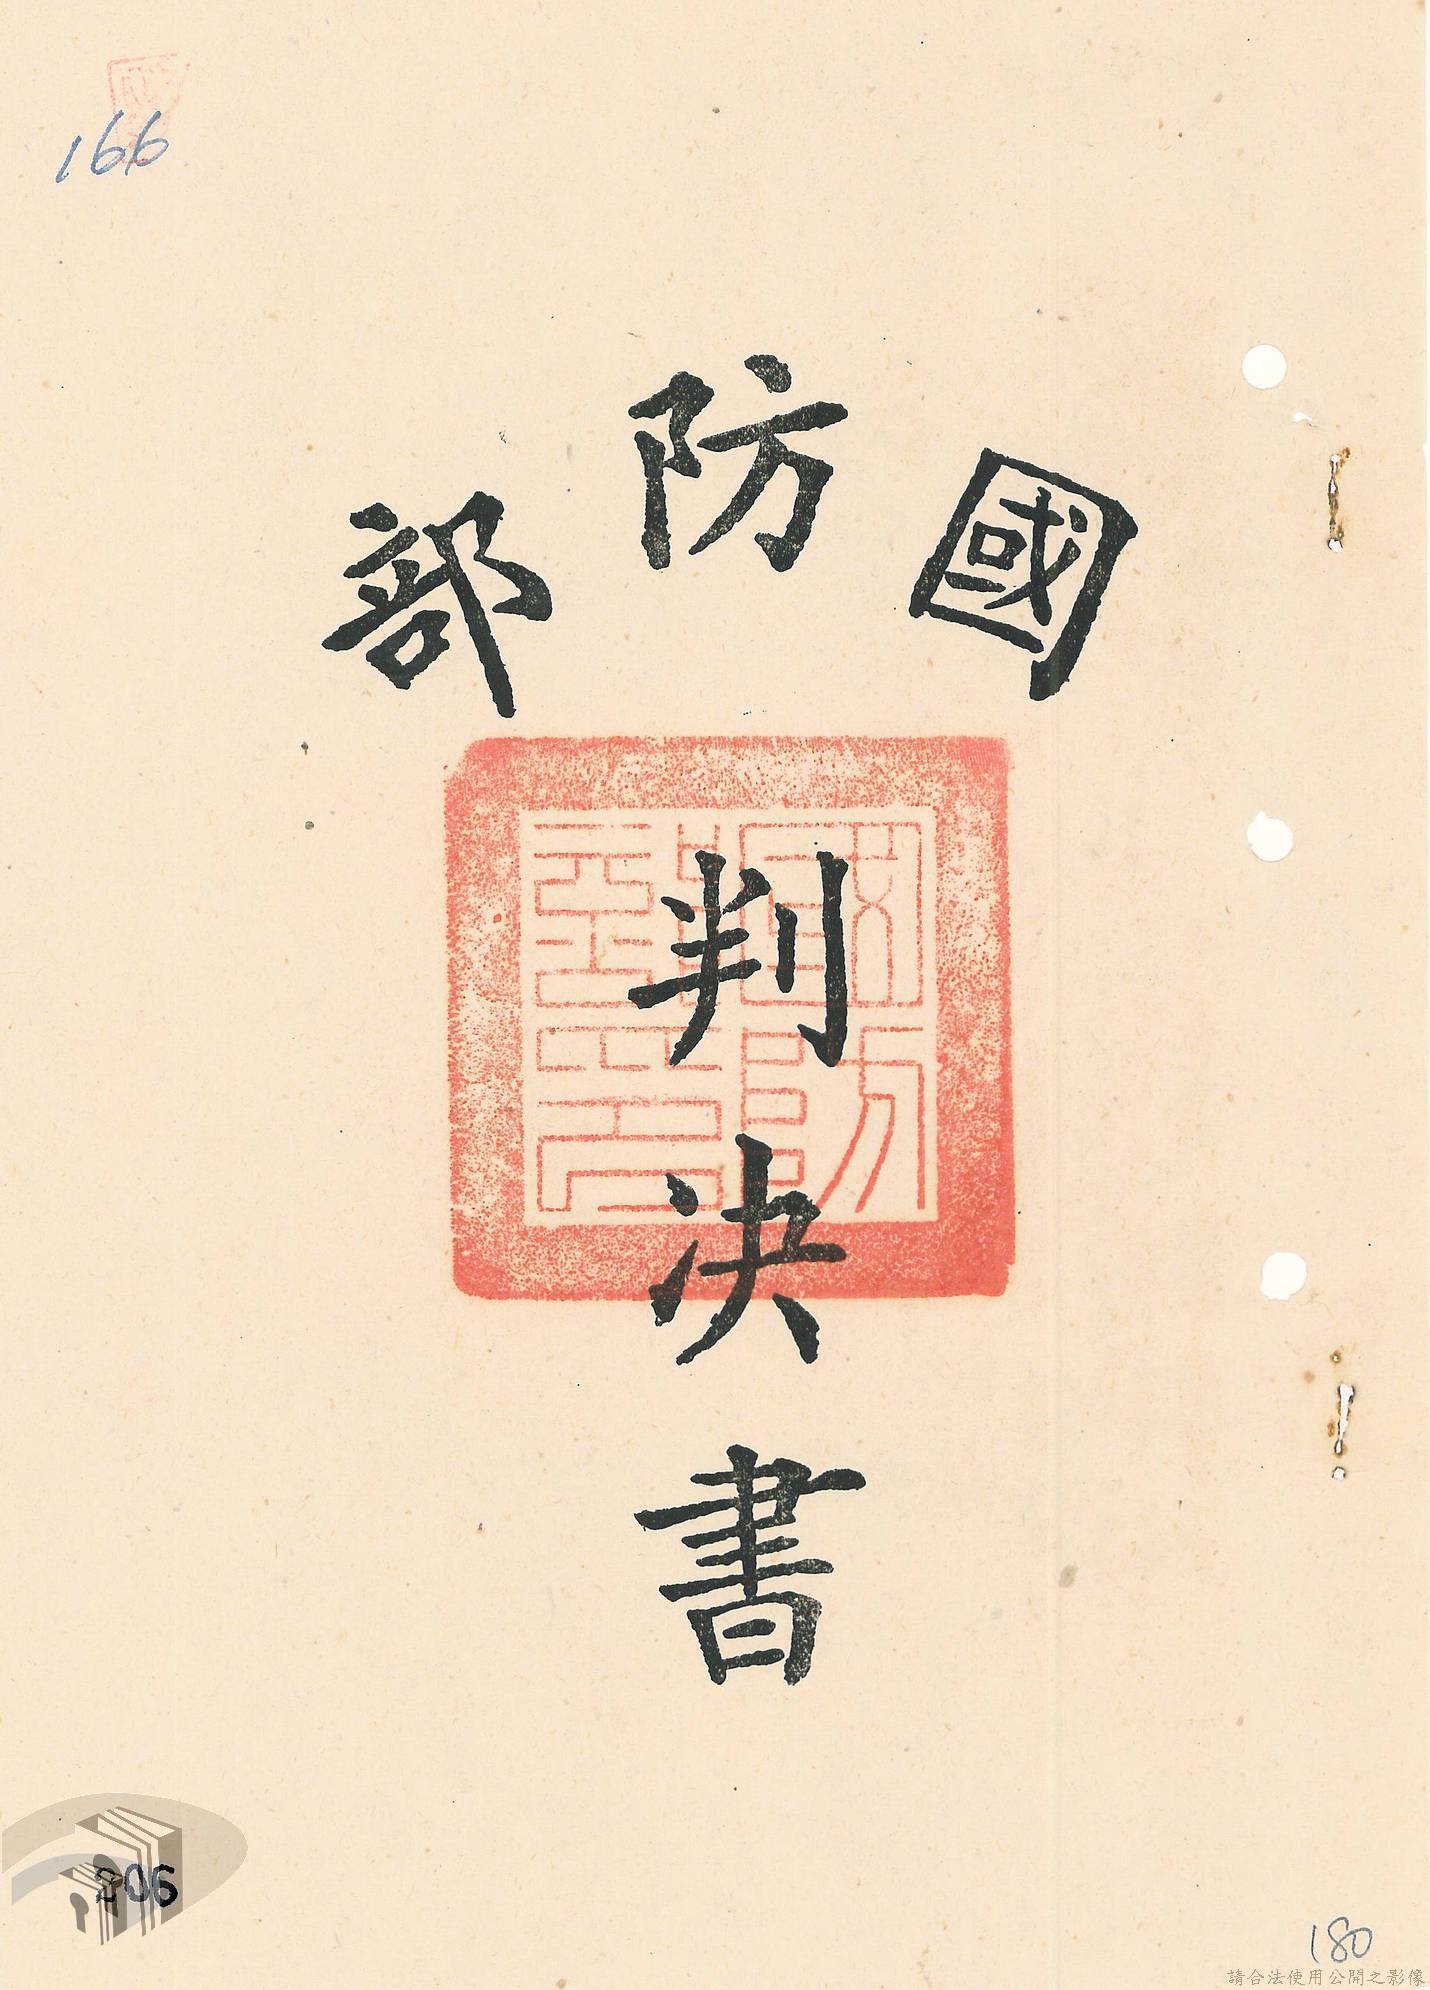 166
國防部
判決書
206
180
請合法使用公開之影像